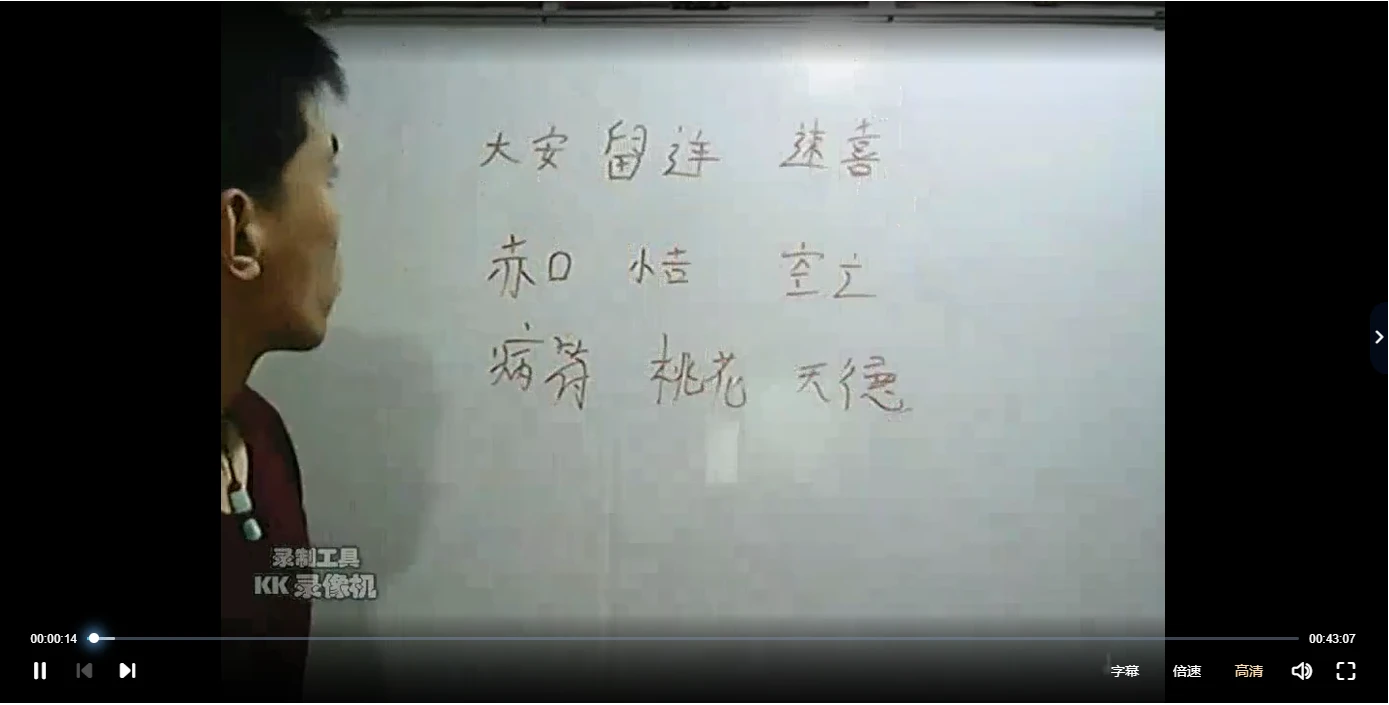 大安 留连 速喜
赤口 小吉 空亡
病符 桃花 天德
录制工具
KK 录像机
00:00:14
00:43:07
字幕 倍速 高清